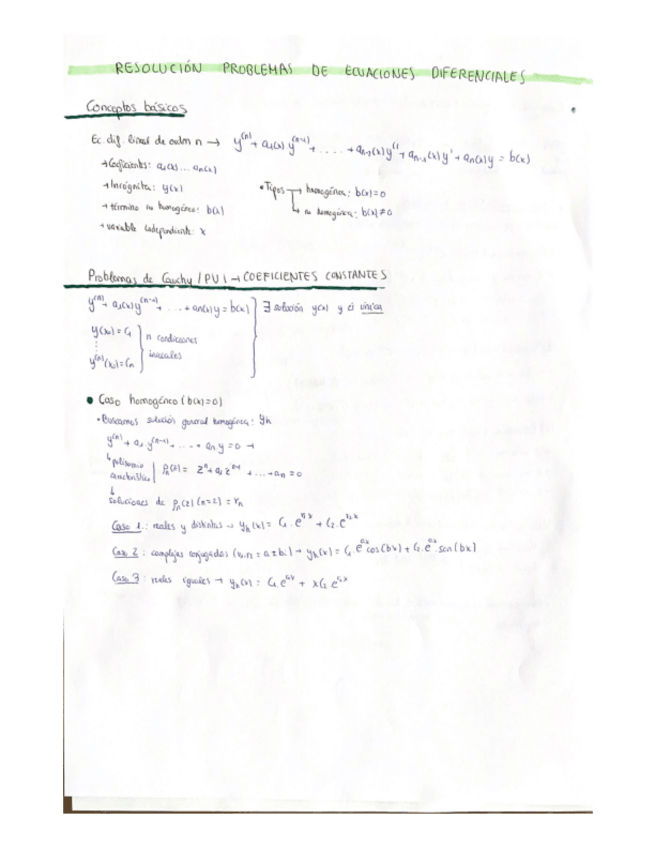 RESOLUCIÓN PROBLEMAS DE ECUACIONES DIFERENCIALES
Conceptos básicos
Ec. dif. lineal de orden n → y⁽ⁿ⁾ + a₁(x) y⁽ⁿ⁻¹⁾ + .... + aₙ₋₂(x) y'' + aₙ₋₁(x) y' + aₙ(x) y = b(x)
→ Coeficientes: a₁(x) ... aₙ(x)
→ Incógnita: y(x)
• Tipos → homogénea: b(x)=0
→ término no homogéneo: b(x)
↳ no homogénea: b(x)≠0
→ variable independiente: x
Problemas de Cauchy / PVI → COEFICIENTES CONSTANTES
y⁽ⁿ⁾ + a₁(x) y⁽ⁿ⁻¹⁾ + ... + aₙ(x) y = b(x) } ∃ solución y(x) y es única
y(x₀) = C₁
n condiciones
iniciales
y⁽ⁿ⁾(x₀) = Cₙ
• Caso homogéneo (b(x)=0)
• Buscamos solución general homogénea: yₕ
y⁽ⁿ⁾ + a₁ y⁽ⁿ⁻¹⁾ + ... + aₙ y = 0 →
↳ polinomio característico | Pₙ(z) = zⁿ + a₁ zⁿ⁻¹ + ... + aₙ = 0
↓
soluciones de Pₙ(z) (n=2) = rₙ
Caso 1: reales y distintas → yₕ(x) = C₁·e^r₁x + C₂·e^r₂x
Caso 2: complejas conjugadas → yₕ(x) = C₁·e^ax cos(bx) + C₂·e^ax·sen(bx)
Caso 3: reales iguales → yₕ(x) = C₁·e^r₁x + xC₂·e^r₁x